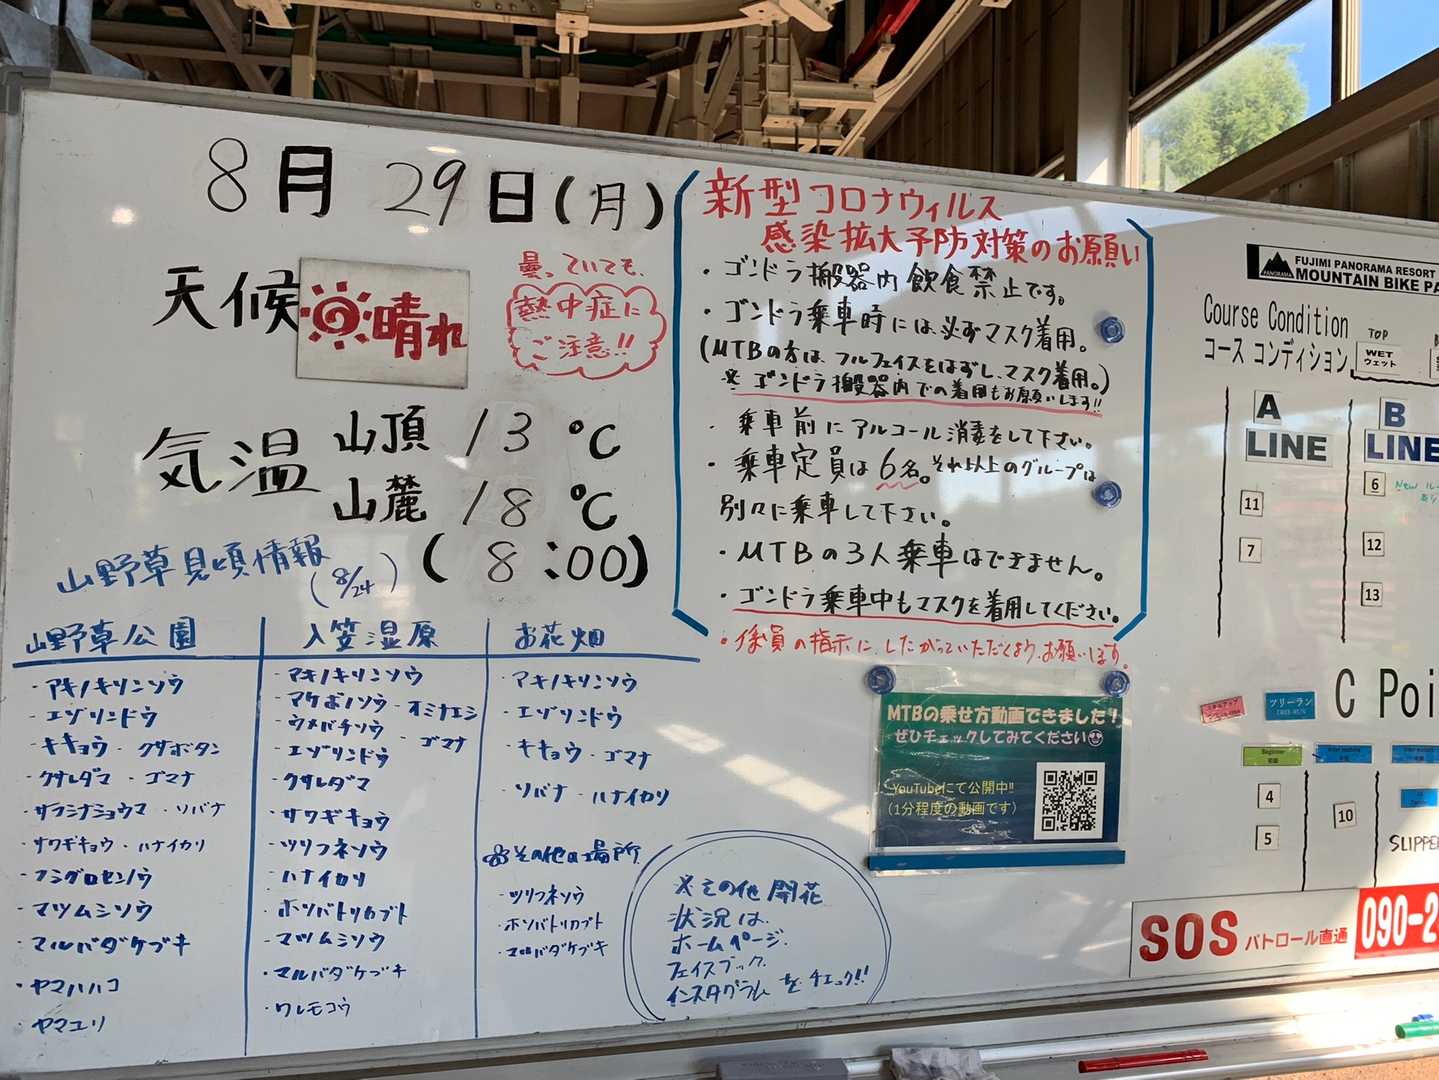 8月 29日(月)
天候 晴れ
曇っていても、
熱中症に
ご注意!!
気温 山頂 13 ℃
山麓 18 ℃
(8:00)
新型コロナウィルス
感染拡大予防対策のお願い
・ゴンドラ搬器内飲食禁止です。
・ゴンドラ乗車時には必ずマスク着用。
(MTBの方は、フルフェイスをはずし、マスク着用。)
※ゴンドラ搬器内での着用もお願いします!!
・乗車前にアルコール消毒をして下さい。
・乗車定員は6名。それ以上のグループは
別々に乗車して下さい。
・MTBの3人乗車はできません。
・ゴンドラ乗車中もマスクを着用してください。
・係員の指示に、したがっていただくよう、お願いします。
山野草見頃情報
(8/24)
山野草公園
・アキノキリンソウ
・エゾリンドウ
・キキョウ ・クサボタン
・クサレダマ ・ゴマナ
・サラシナショウマ ・ソバナ
・サワギキョウ ・ハナイカリ
・フシグロセンノウ
・マツムシソウ
・マルバダケブキ
・ヤマハハコ
・ヤマユリ
入笠湿原
・アキノキリンソウ
・アケボノソウ ・オミナエシ
・ウメバチソウ ・ゴマナ
・エゾリンドウ
・クサレダマ
・サワギキョウ
・ツリフネソウ
・ハナイカリ
・ホソバトリカブト
・マツムシソウ
・マルバダケブキ
・ワレモコウ
お花畑
・アキノキリンソウ
・エゾリンドウ
・キキョウ ・ゴマナ
・ソバナ ・ハナイカリ
その他の場所
・ツリフネソウ
・ホソバトリカブト
・マルバダケブキ
※その他開花
状況は、
ホームページ、
フェイスブック、
インスタグラムをチェック!!
MTBの乗せ方動画できました!
ぜひチェックしてみてください
YouTubeにて公開中!!
(1分程度の動画です)
PANORAMA
FUJIMI PANORAMA RESORT
MOUNTAIN BIKE PA
Course Condition
コース コンディション
TOP
WET
ウェット
A
LINE
11
7
B
LINE
6
New
12
13
C Poi
フリーラン
Beginner
初級
4
5
10
SLIPPE
SOS パトロール直通
090-2